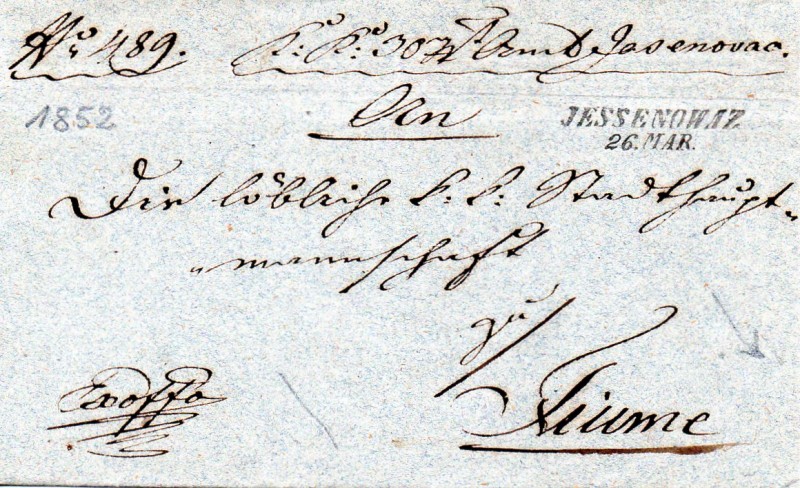 No 489. K: K: Zoll Amt Jasenovac.
1852
An
JESSENOWAZ
26. MAR.
Die löbliche k: k: Stadthaupt-
mannschaft
zu
Exoffo
Fiume